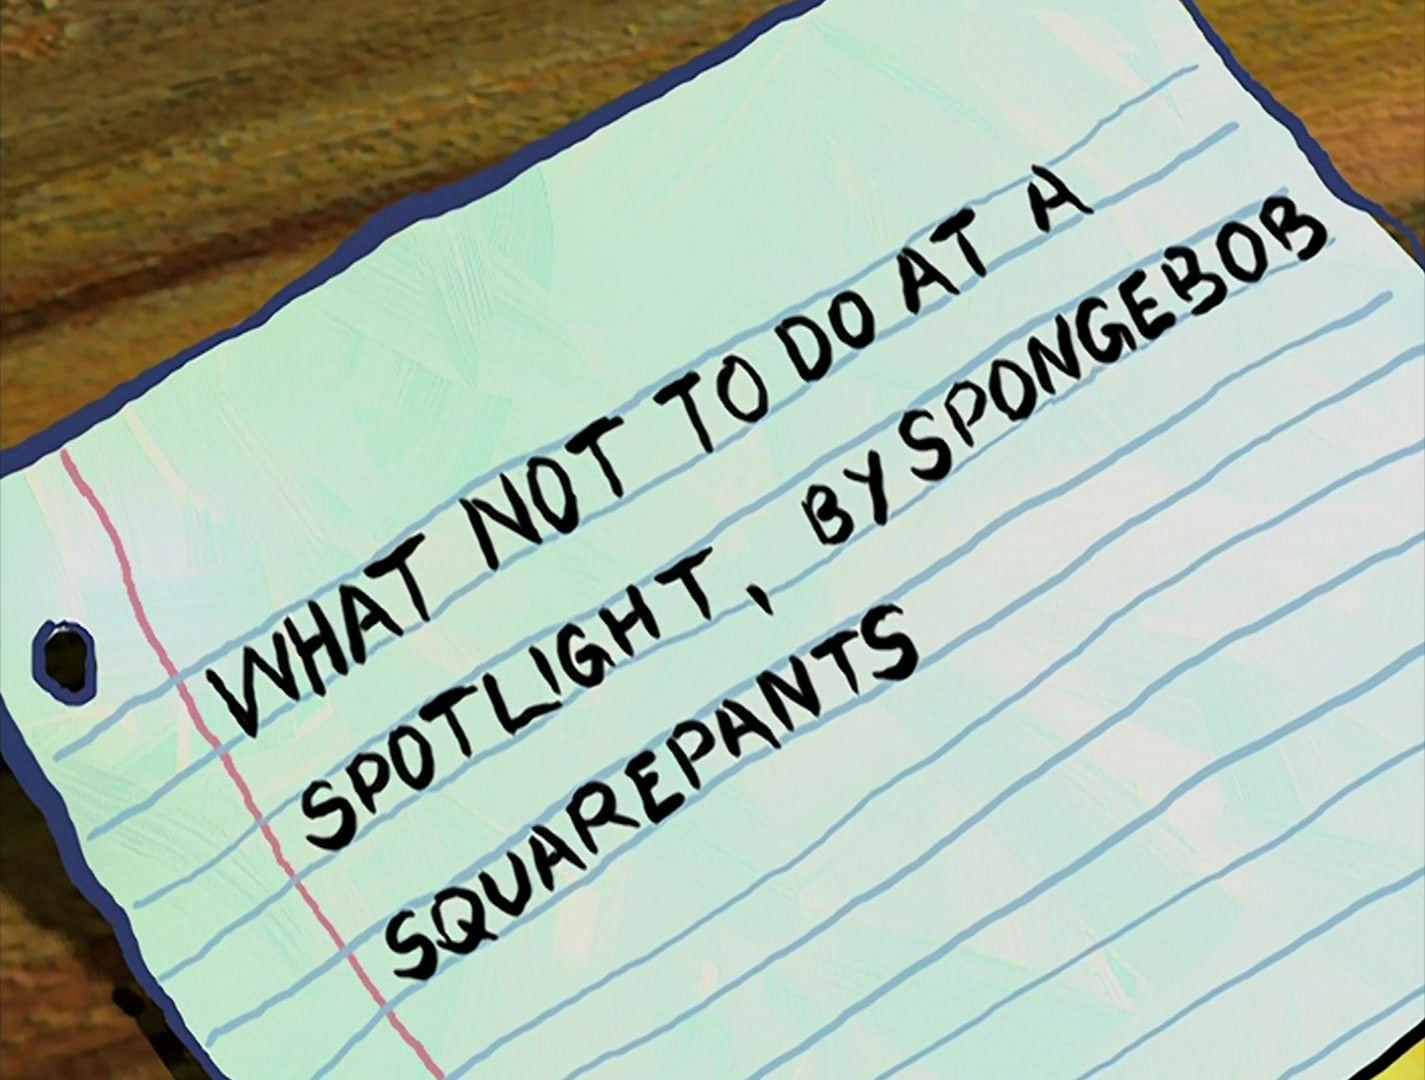 WHAT NOT TO DO AT A
SPOTLIGHT, BY SPONGEBOB
SQUAREPANTS